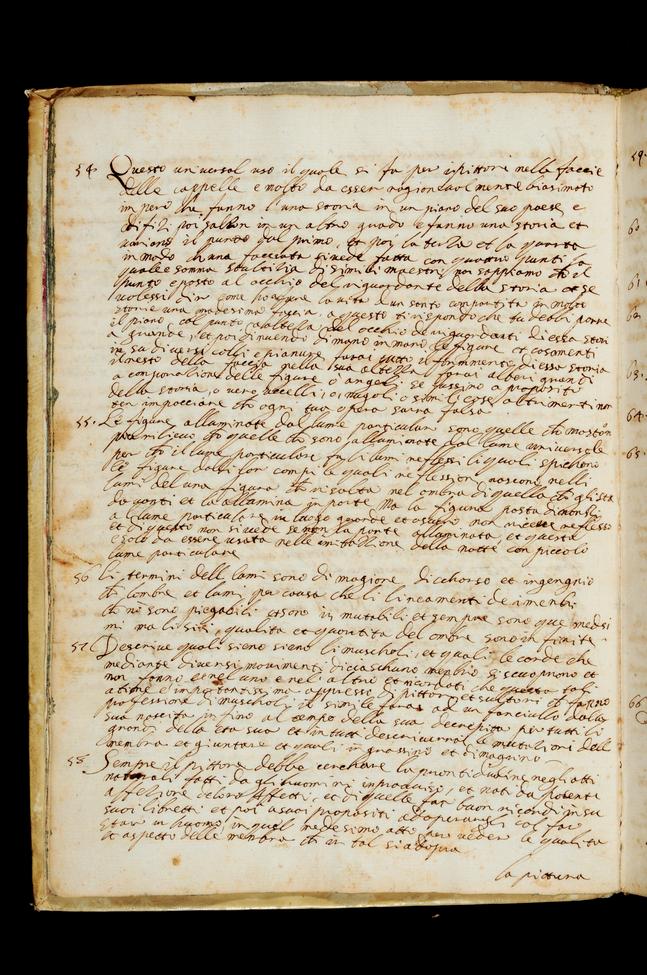 54 Questo universal uso il quale si fa per i pittori nelle faccie
delle cappelle e molto da esser ragionevolmente biasimato
in pero che fanno l'una storia in un piano del suo paese e
difizi poi salgon in un altro grado e fanno una storia et
variano il punto dal primo, et poi la terza et la quarta
in modo ch una facciata si vede fatta con quattro punti la
quale e somma stultitia di simili maestri, noi sappiamo ch il
punto e posto al occhio del riguardante della storia et se
volessi dir come ho a fare la vita d'un santo compartita in molte
storie una medesima faccia, a questo ti rispondo che tu debbi porre
il piano col punto a altezza del occhio de riguardanti di essa stori
a grande, et poi diminuendo di mano in mano le figure et casamenti
in su diversi colli e pianure farai tutto il fornimento di essa storia
il resto della faccia nella sua altezza farai alberi grandi
a comparatione delle figure o angeli se fussino a proposito
della storia, o vero uccelli, o nugoli o simili cose altrimenti non
ten impacciare ch ogni tua opera sara falsa
55. Le figure alluminate dal lume particulare sono quelle ch mostran
piu rilievo ch quelle ch sono alluminate dal lume universale
per ch il lume particolare fa li lumi reflessi li quali spichano
le figure dalli lor campi le quali reflessioni nascono nelli
lumi del una figura ch risalta nel ombra di quella ch gli sta
davanti et la allumina in parte Ma la figura posta dinanzi
a lume particulare in luogo grande et oscuro non riceve reflesso
et di questo non si vede se non la parte alluminata, et questa
e solo da essere usata nelle imitatione della notte con piccolo
lume particulare
56 Li termini dell lumi sono di magiore dischorso et ingengnio
ch lombre et lumi per causa che li lineamenti de i membri
ch ne sono piegabili et sono in mutabili et sempre sono que medesi
mi ma li siti, qualita et quantita del ombre sono in finite -
57 Descrive quali sieno sieno li muscholi, et quali le corde che
mediante diversi movimenti di ciaschuno membro si scuoprono et
non fanno et nel uno e nel altro et ricordati che questa tal
atione e importantissima appresso di pittori et scultori ch fanno
professione di muscholi il simile farai ad un fanciullo dalla
sua nascita in fino al tempo della sua decrepita per tutti li
gradi della eta sua et in tutti descriverrai le mutationi delle
membra et giunture et quali in grassino et dimagrino
58 Sempre il pittore debbe cerchare la prontitudine negli atti
naturali fatti da gli huomini improviso, et nati da potente
affettione de loro affetti, et di quelle far brevi ricordi in su
suoi libretti et poi a suoi propositi adoperargli col far
star un huomo in quel medesimo atto per veder la qualita
et aspetto delle membra ch in tal si adopra
la pittura
59.
60
61
62
63.
64.
65.
66